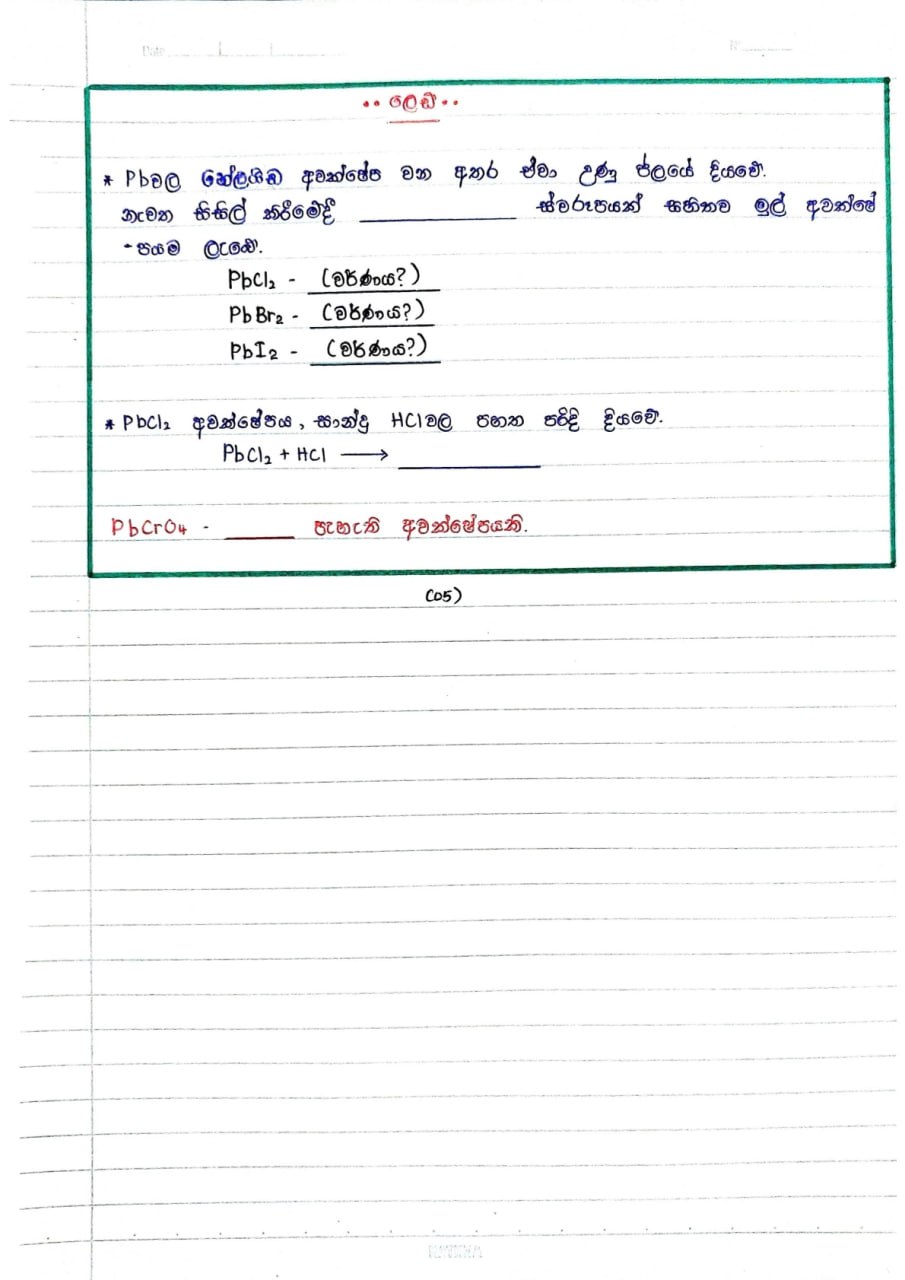 Date
N°
•• ලෙඩ් ••
* Pbවල හේලයිඩ අවක්ෂේප වන අතර ඒවා උණු ජලයේ දියවේ.
නැවත සිසිල් කිරීමේදී ____________ ස්වරූපයක් සහිතව මුල් අවක්ෂේ
-පයම ලැබේ.
PbCl₂ - (වර්ණය?)
PbBr₂ - (වර්ණය?)
PbI₂ - (වර්ණය?)
* PbCl₂ අවක්ෂේපය, සාන්ද්‍ර HClවල පහත පරිදි දියවේ.
PbCl₂ + HCl ⟶ ____________
PbCrO₄ - ______ පැහැති අවක්ෂේපයකි.
(05)